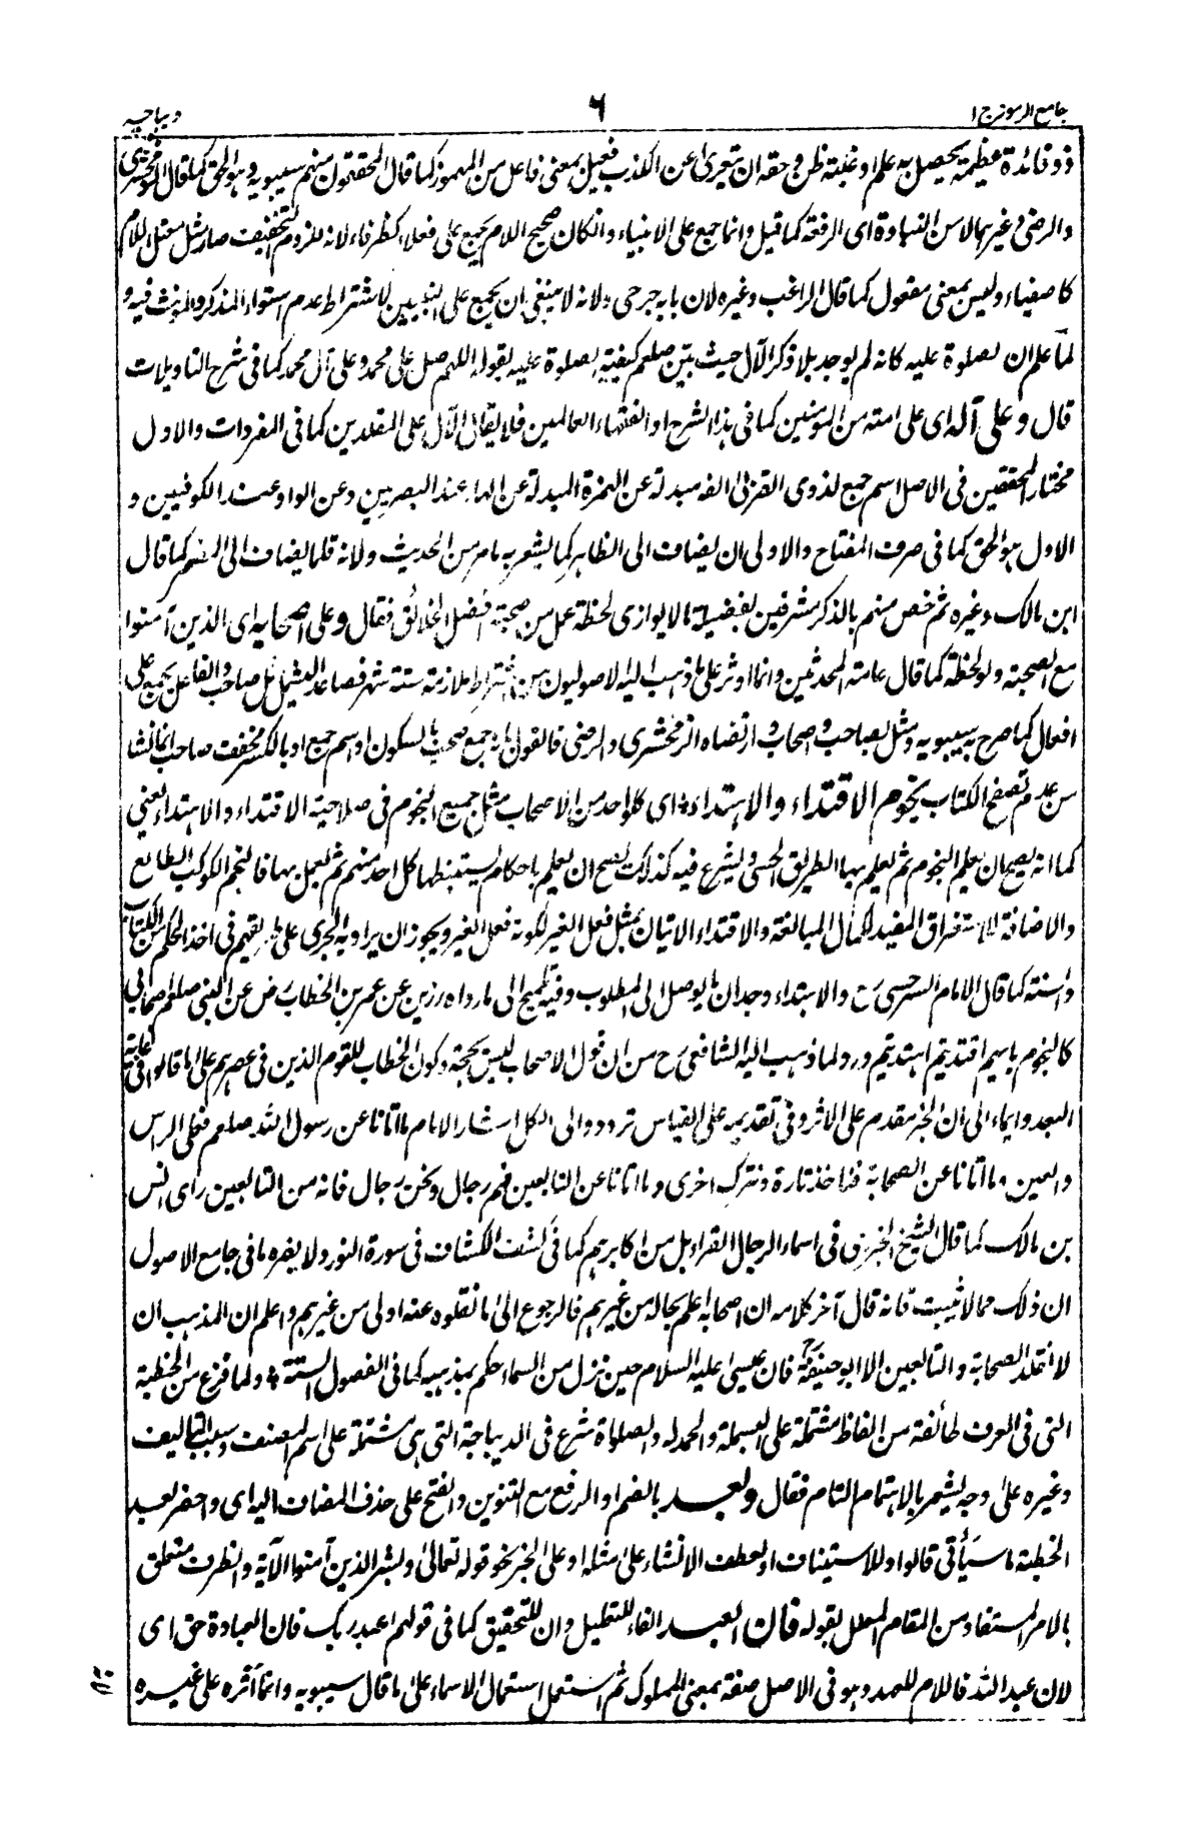 جامع الرموز ج ١
٦
ديباجيه
ذو فائدة عظيمة يحصل به علم او غلبة ظن و حقه ان يتعرى عن الكذب فعيل بمعنى فاعل من المهموز كما قال المحققون منهم سيبويه و هو الحق كما قال الزمخشرى
والرضى و غيرهما لا من النباوة اى الرفعة كما قيل وانما جمع على الانبياء وانكان صحيح اللام يجمع على فعلاء كظرفاء لانه للزوم التخفيف صار مثل معتل اللام
كاصفياء وليس بمعنى مفعول كما قال الراغب وغيره لان بابه جرحى ولانه لا ينبغى ان يجمع على النبيين لاشتراط عدم استواء المذكر والمونث فيه و
لما علم ان لصلوة عليه كانه لم يوجد بلا ذكر الآل حيث بين صلعم كيفية لصلوة عليه بقوله اللهم صل على محمد وعلى آل محمد كما فى شرح التاويلات
قال و على آله اى على امته من المؤمنين كما فى هذا الشرح او الفقهاء العالمين فلا يقال الآل على المقلدين كما فى المفردات والاول
مختار المحققين فى الاصل اسم جمع لذوى القربى الفه مبدلة عن الهمزة المبدلة عن الهاء عند البصريين وعن الواو عند الكوفيين و
الاول هو الحق كما فى صرف المفتاح والاولى ان يضاف الى الظاهر كما يشعر به ما مر من الحديث ولانه قلما يضاف الى المضمر كما قال
ابن مالك وغيره ثم خص منهم بالذكر مشرفين بفضيلة لا يوازى لحظة عمل من صحبة افضل الخلائق فقال وعلى اصحابه اى الذين آمنوا
مع الصحبة ولو لحظة كما قال عامة المحدثين وانما اوثر على ما ذهب اليه الاصوليون من اشتراط ملازمة ستة اشهر فصاعدا ليشمل كل صاحب والفاعل يجمع على
افعال كما صرح به سيبويه ومثل بصاحب واصحاب وارتضاه الزمخشرى والرضى فالقول بانه جمع صحب بالسكون او اسم جمع او بالكسر مخفف صاحب انما نشأ
من عدم تصفح الكتاب نجوم الاقتداء والاهتداء اى كل واحد من الاصحاب مثل جميع النجوم فى صلاحية الاقتداء والاهتداء يعنى
كما انه يصح ان يعلم النجوم ثم يعلم بها الطريق الحسى ويشرع فيه كذلك يصح ان يعلم باحكام يستنبطها كل احد منهم ثم يعمل بها فالنجم الكوكب الطالع
والاضافة للاستغراق المفيد لكمال المبالغة والاقتداء الاتيان بمثل فعل الغير لكونه فعل الغير ويجوز ان يراد به الجرى على طريقهم فى اخذ الحكم من الكتاب
والسنة كما قال الامام السرخسى رح والاهتداء وجدان ما يوصل الى المطلوب وفيه تلميح الى ما رواه رزين عن عمر بن الخطاب رض عن النبى صلعم اصحابى
كالنجوم بايهم اقتديتم اهتديتم ورد لما ذهب اليه الشافعى رح من ان قول الاصحاب ليس بحجة وكون الخطاب للقوم الذين فى عصرهم على ما قالوا فى غاية
البعد وايماء الى ان الخبر مقدم على الاثر وفى تقديمه على القياس تردد والى الكل اشار الامام ما اتانا عن رسول الله صلعم فعلى الراس
والعين وما اتانا عن الصحابة فناخذ تارة ونترك اخرى وما اتانا عن التابعين فهم رجال ونحن رجال فانه من التابعين رأى انس
بن مالك كما قال الشيخ الجزرى فى اسماء الرجال القراء بل من اكابرهم كما فى كشف الكشاف فى سورة النور ولا يضره ما فى جامع الاصول
ان ذلك مما لا يثبت فانه قال آخر كلامه ان اصحابه اعلم بحاله من غيرهم فالرجوع الى ما نقلوه عنه اولى من غيرهم واعلم ان المذهب ان
لا نقلد الصحابة والتابعين الا ابو حنيفة رح فان عيسى عليه السلام حين نزل من السماء حكم بمذهبه كما فى الفصول الستة ولما فرغ من الخطبة
التى فى العرف طائفة من الفاظ مشتملة على البسملة والحمدلة والصلاة شرع فى الديباجة التى هى مشتملة على اسم المصنف وسبب التاليف
وغيره على وجه يشعر بالاهتمام التام فقال وبعد بالضم او الرفع مع التنوين والفتح على حذف المضاف اليه اى واحضر بعد
الخطبة ما سيأتى قالوا وللاستيناف او لعطف الانشاء على مثله او على الخبر نحو قوله تعالى وبشر الذين آمنوا الآية والظرف متعلق
بالامر المستفاد من المقام المعلل بقوله فان العبد الفاء للتعليل وان للتحقيق كما فى قولهم اعبد ربك فان العبادة حق اى
لان عبد الله فاللام للعهد وهو فى الاصل صفة بمعنى المملوك ثم استعمل استعمال الاسماء على ما قال سيبويه وانما آثره على غيره